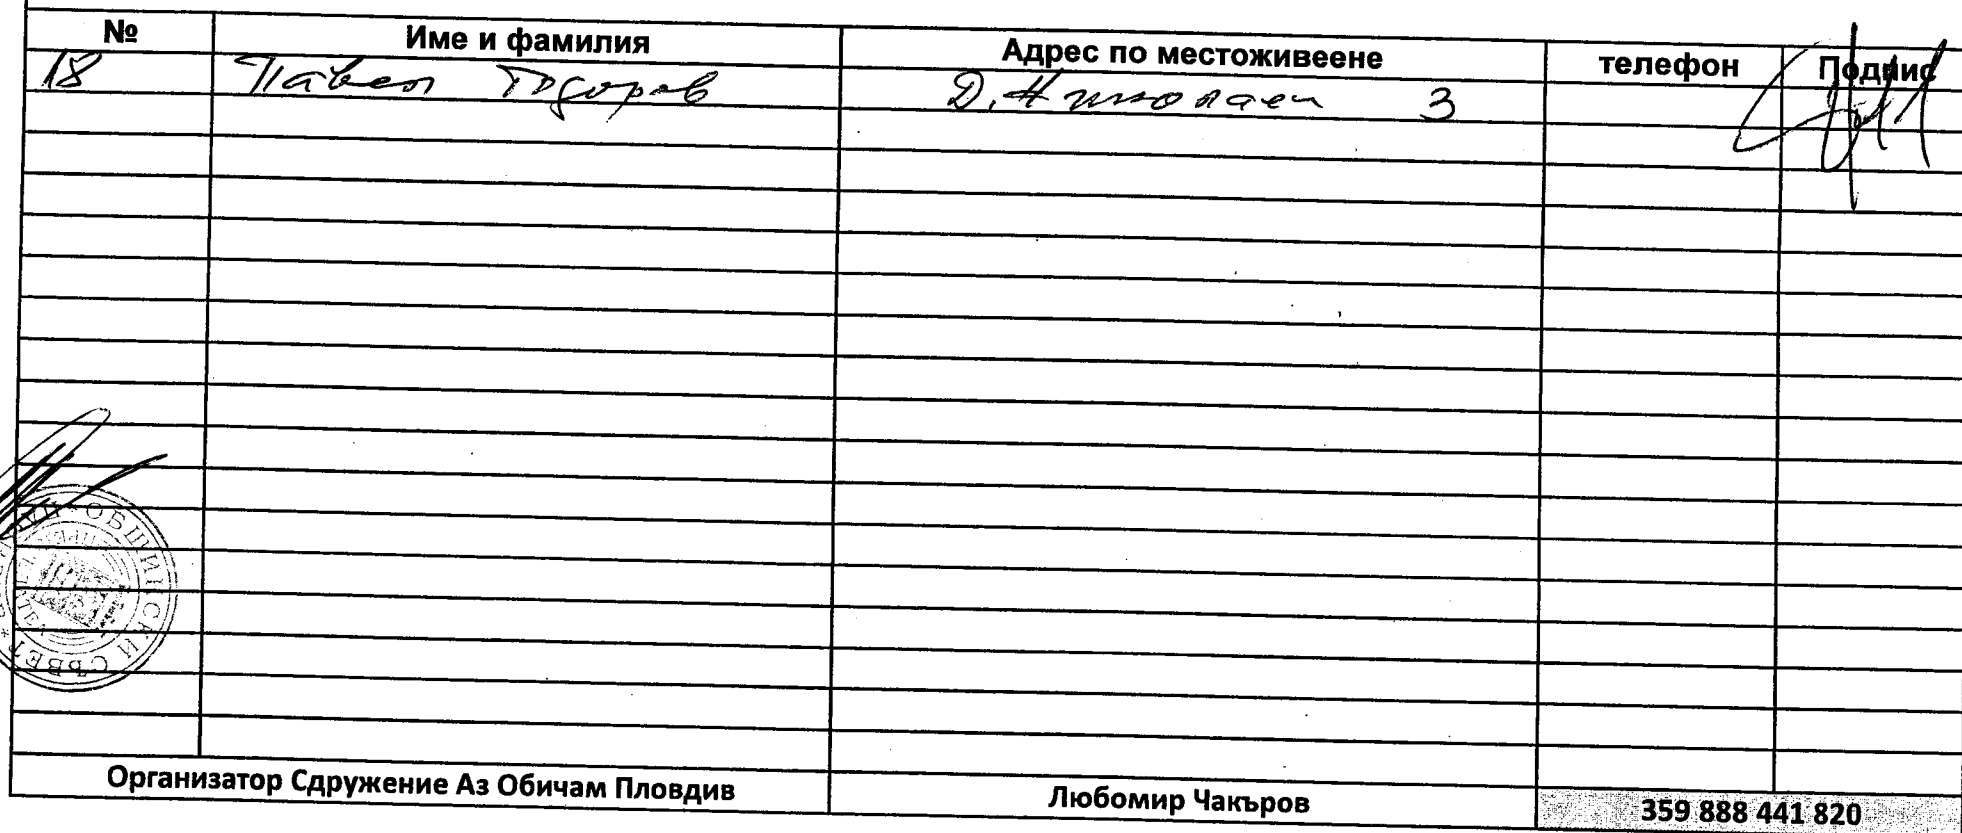 № Име и фамилия Адрес по местоживеене телефон Подпис
18 Павел Тодоров Д. Николаев 3
ОБЩИНСКИ СЪВЕТ
Организатор Сдружение Аз Обичам Пловдив Любомир Чакъров 359 888 441 820